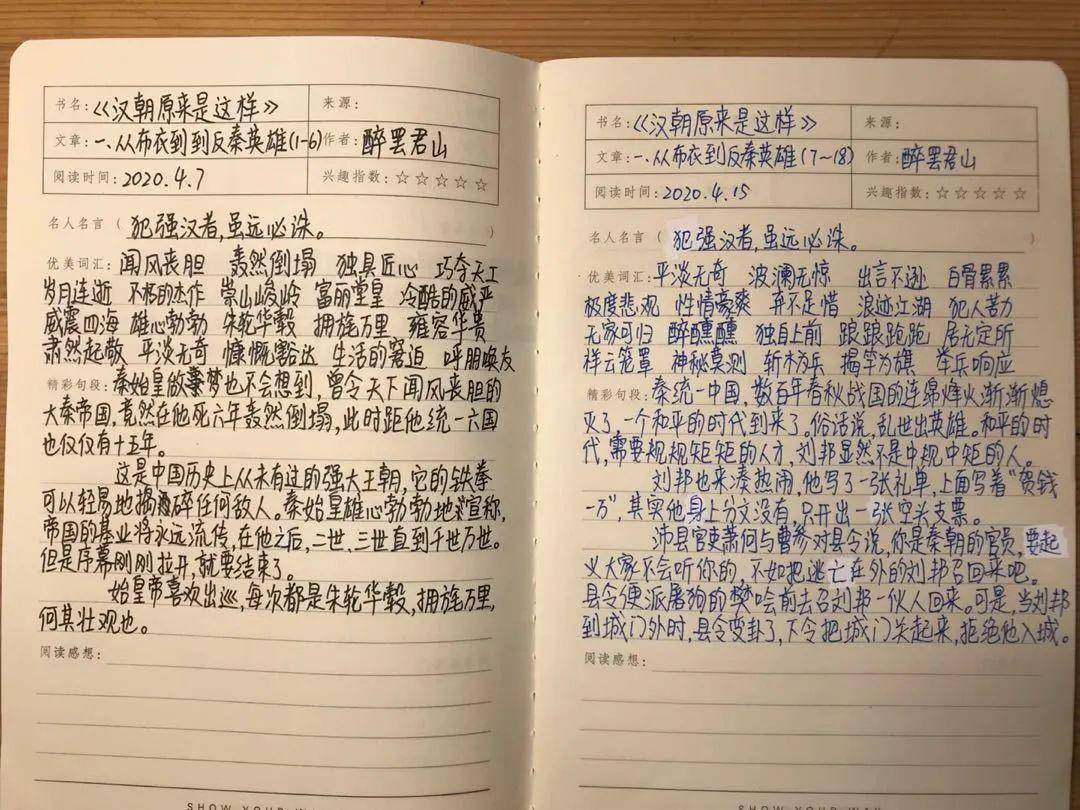 书名：《汉朝原来是这样》 来源：
文章：一、从布衣到到反秦英雄(1-6) 作者：醉罢君山
阅读时间：2020.4.7 兴趣指数：☆☆☆☆☆
名人名言（ 犯强汉者，虽远必诛。 ）
优美词汇：闻风丧胆 轰然倒塌 独具匠心 巧夺天工
岁月连逝 不朽的杰作 崇山峻岭 富丽堂皇 冷酷的威严
威震四海 雄心勃勃 朱轮华毂 拥旄万里 雍容华贵
肃然起敬 平淡无奇 慷慨豁达 生活的窘迫 呼朋唤友
精彩句段：秦始皇做梦也不会想到，曾令天下闻风丧胆的
大秦帝国，竟然在他死六年轰然倒塌，此时距他统一六国
也仅仅有十五年。
这是中国历史上从未有过的强大王朝，它的铁拳
可以轻易地捣碎任何敌人。秦始皇雄心勃勃地宣称，
帝国的基业将永远流传，在他之后，二世、三世直到千世万世。
但是序幕刚刚拉开，就要结束了。
始皇帝喜欢出巡，每次都是朱轮华毂，拥旄万里，
何其壮观也。
阅读感想：
SHOW YOUR
书名：《汉朝原来是这样》 来源：
文章：一、从布衣到反秦英雄(7~18) 作者：醉罢君山
阅读时间：2020.4.15 兴趣指数：☆☆☆☆☆
名人名言（ 犯强汉者，虽远必诛。 ）
优美词汇：平淡无奇 波澜无惊 出言不逊 白骨累累
极度悲观 性情豪爽 弃不足惜 浪迹江湖 犯人苦力
无家可归 醉醺醺 独自上前 踉踉跄跄 居无定所
祥云笼罩 神秘莫测 斩木为兵 揭竿为旗 举兵响应
精彩句段：秦统一中国，数百年春秋战国的连绵烽火渐渐熄
灭了，一个和平的时代到来了。俗话说，乱世出英雄。和平的时
代，需要规规矩矩的人才，刘邦显然不是中规中矩的人。
刘邦也来凑热闹，他写了一张礼单，上面写着“贺钱
一万”，其实他身上分文没有，只开出一张空头支票。
沛县官吏萧何与曹参对县令说，你是秦朝的官员，要起
义大家不会听你的，不如把逃亡在外的刘邦召回来吧。
县令便派屠狗的樊哙前去召刘邦一伙人回来。可是，当刘邦
到城门外时，县令变卦了，下令把城门关起来，拒绝他入城。
阅读感想：
SHOW YOUR